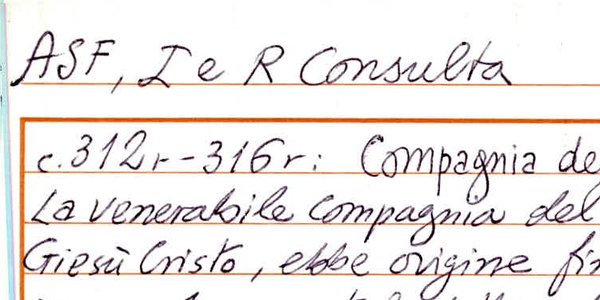 ASF, I e R Consulta
c. 312r-316r: Compagnia de
La venerabile Compagnia del
Giesù Cristo, ebbe origine fin